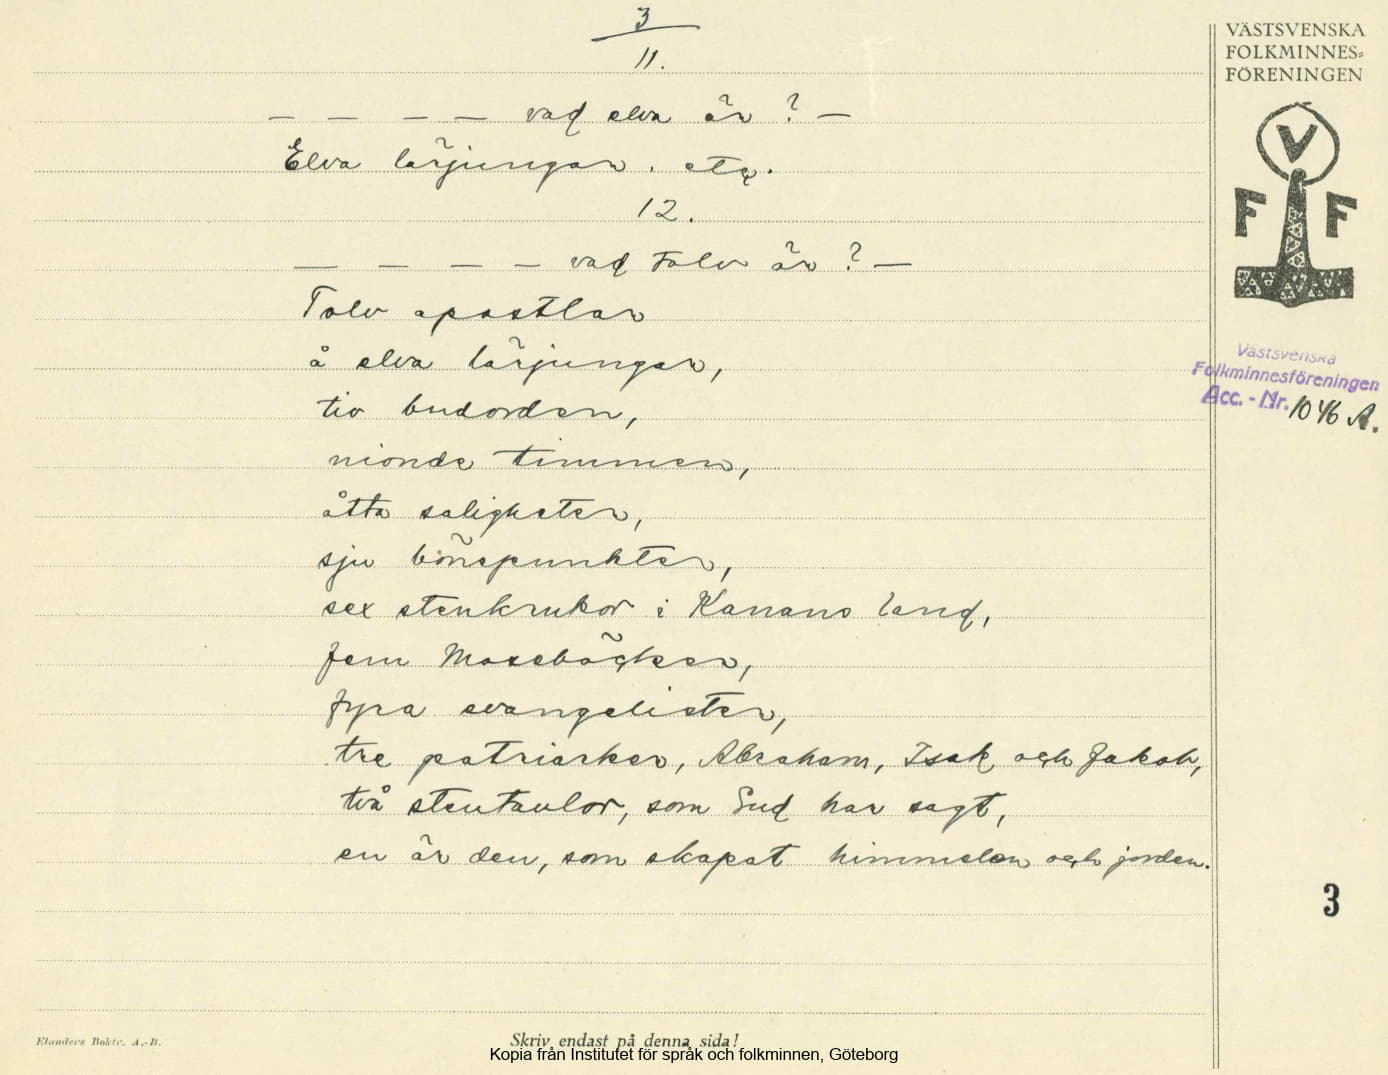 3
11.
— — — — vad elva är? —
Elva lärjungar. etc.
12.
— — — — vad tolv är? —
Tolv apostlar
å elva lärjungar,
tio budorden,
nionde timmen,
åtta saligheter,
sju bönepunkter,
sex stenkrukor i Kanans land,
fem Moseböcker,
fyra evangelister,
tre patriarker, Abraham, Isak och Jakob,
två stentavlor, som Gud har sagt,
en är den, som skapat himmelen och jorden.
VÄSTSVENSKA
FOLKMINNES-
FÖRENINGEN
V
F F
Västsvenska
Folkminnesföreningen
Acc. - Nr. 1046 A.
3
Elanders Boktr. A.-B.
Skriv endast på denna sida!
Kopia från Institutet för språk och folkminnen, Göteborg